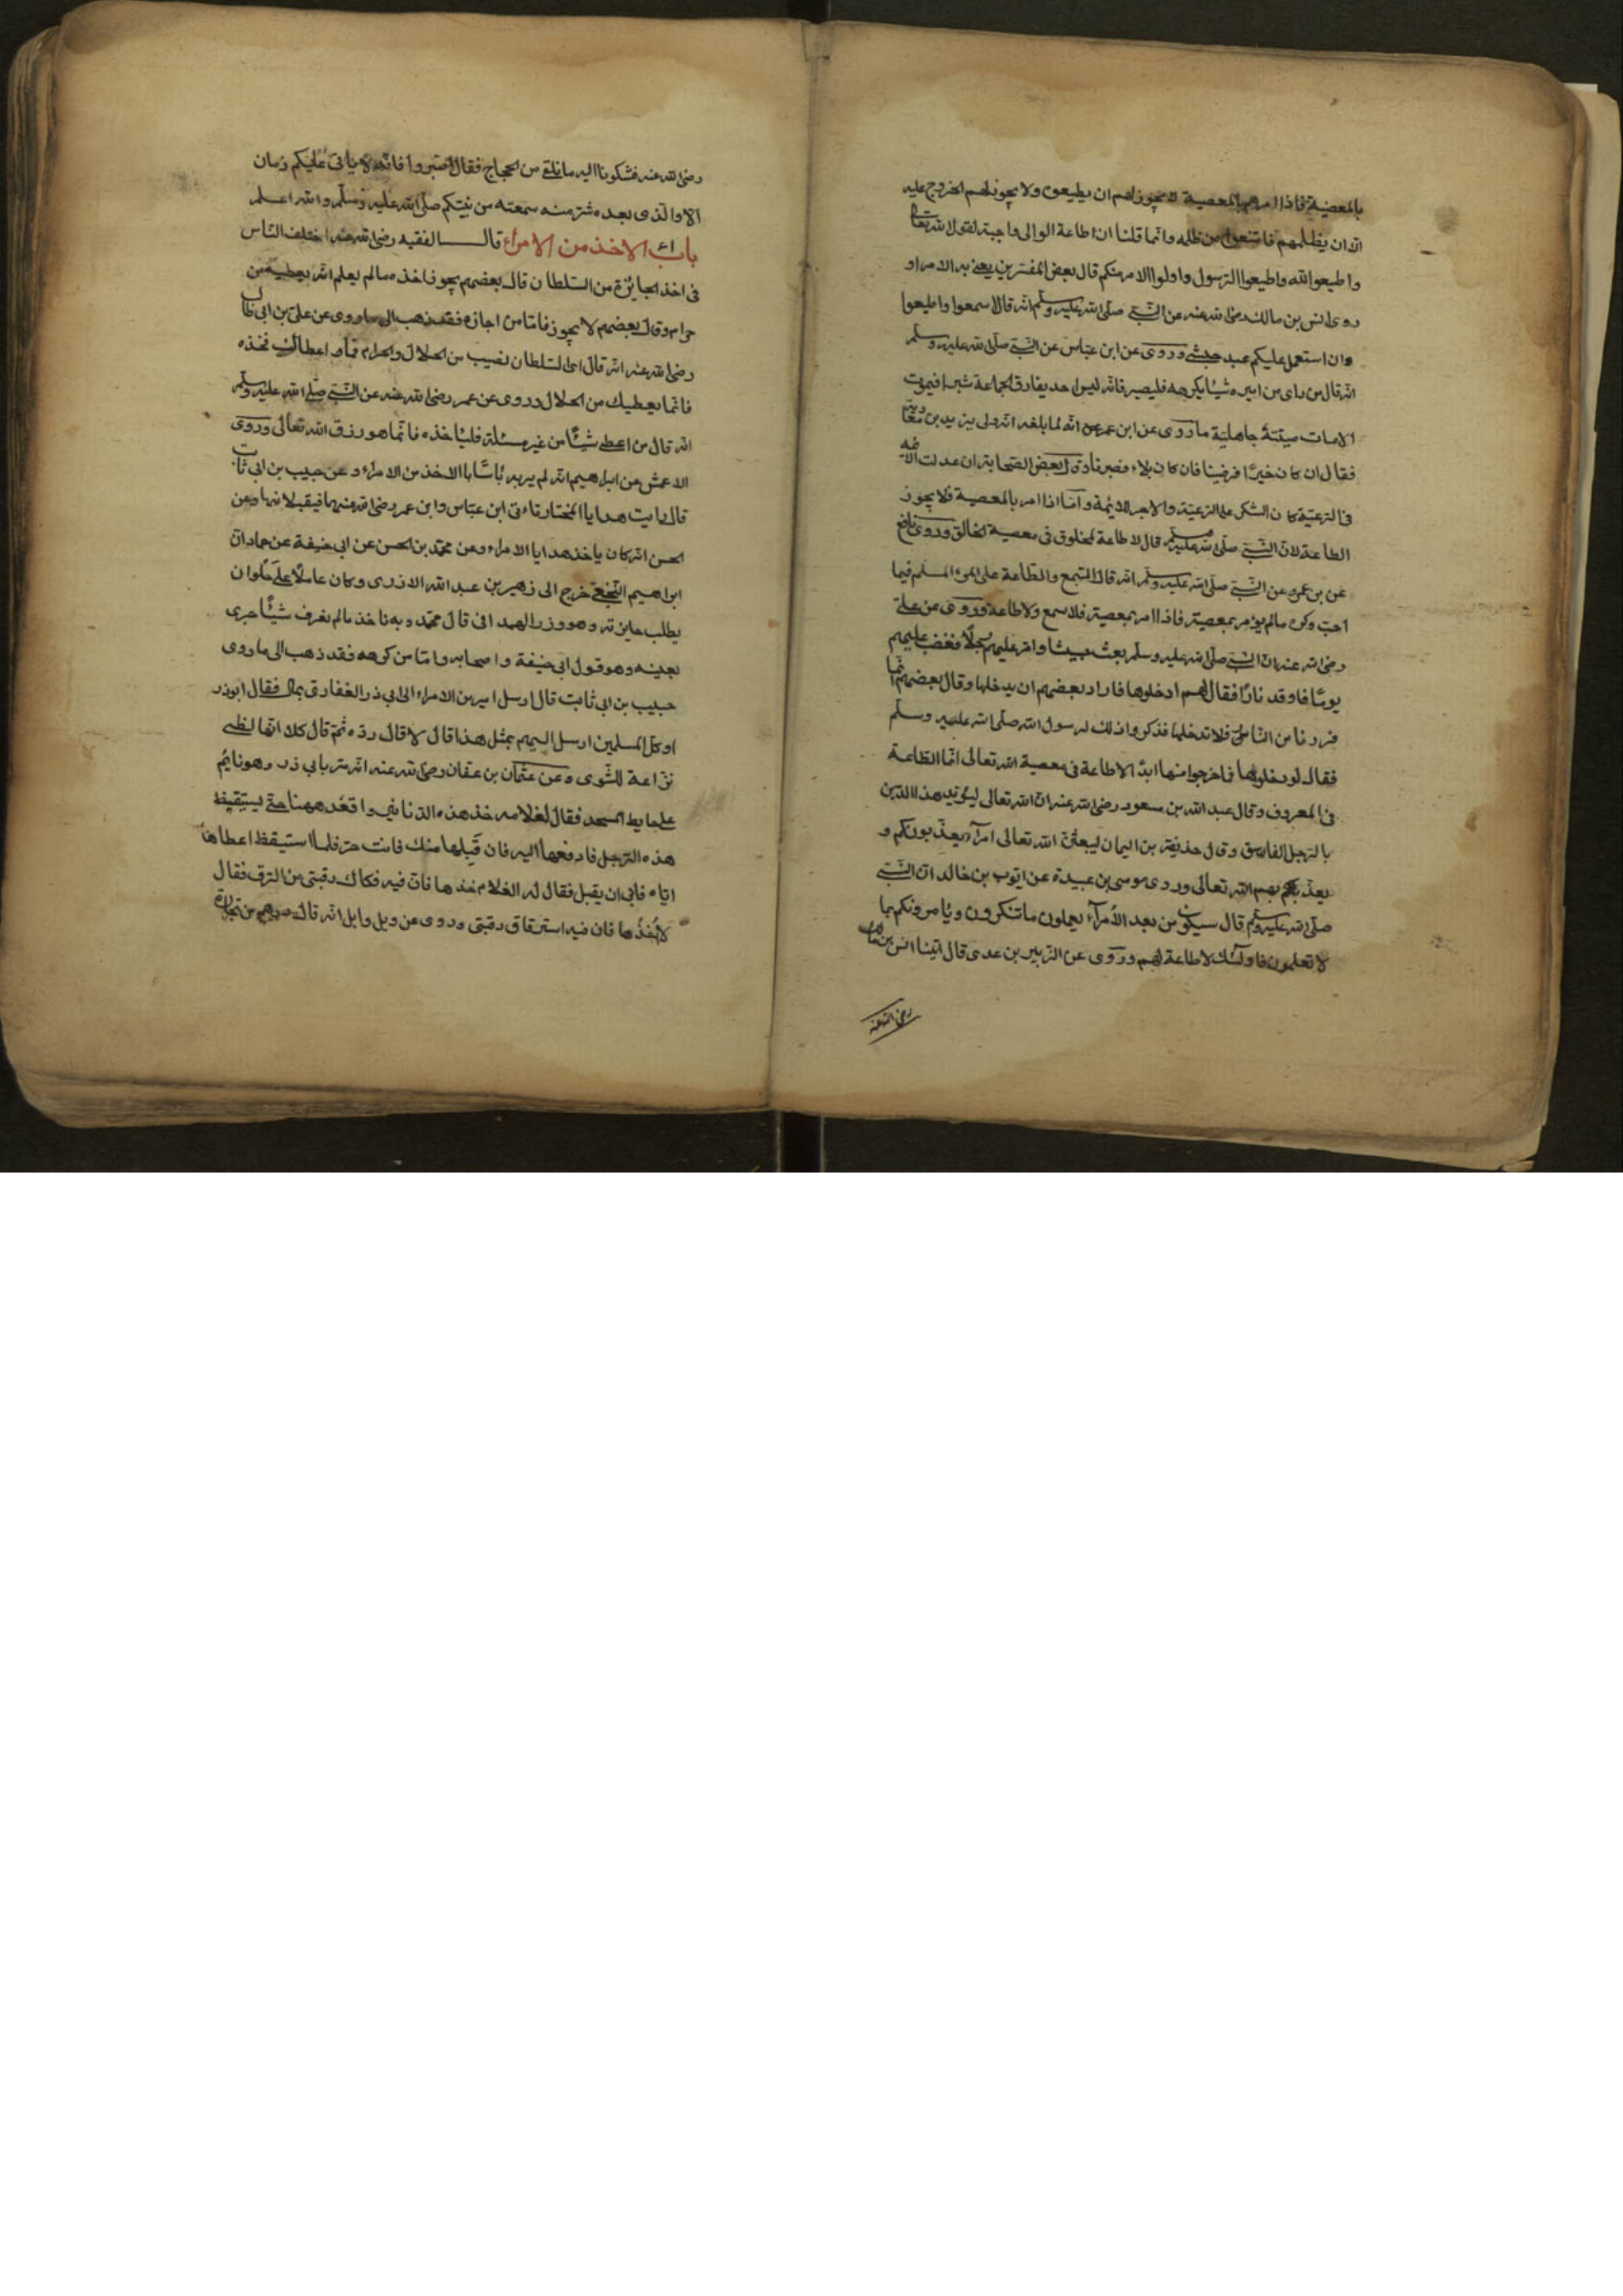 بالمعصية فاذا امرهم بالمعصية لا يجوز لهم ان يطيعوه ولا يجوز لهم الخروج عليه
الا ان يظلمهم فامتنعوا من ظلمه وانما قلنا ان اطاعة الوالى واجبة لقول الله تعالى
واطيعوا الله واطيعوا الرسول واولوا الامر منكم قال بعض المفسرين يعنى به الامراء و
روى انس بن مالك رضى الله عنه عن النبى صلى الله عليه وسلم انه قال اسمعوا واطيعوا
وان استعمل عليكم عبد حبشى وروى عن ابن عباس عن النبى صلى الله عليه وسلم
انه قال من راى من اميره شيئا يكرهه فليصبر فانه ليس احد يفارق الجماعة شبرا فيموت
الا مات ميتة جاهلية ما روى عن ابن عمر انه لما بلغه انه ولى يزيد بن
فقال ان كان خيرا فرضينا فان كان بلاء فصبرنا وقال بعض الصحابة ان عدلت الائمة
فى الرعية كان الشكر على الرعية والاجر للائمة واما اذا امر بالمعصية فلا يجوز
الطاعة لان النبى صلى الله عليه وسلم قال لا طاعة لمخلوق فى معصية الخالق وروى نافع
عن بن عمر عن النبى صلى الله عليه وسلم انه قال السمع والطاعة على المرء المسلم فيما
احب وكره ما لم يؤمر بمعصية فاذا امر بمعصية فلا سمع ولا طاعة وروى عن على
رضى الله عنه ان النبى صلى الله عليه وسلم بعث جيشا وامر عليهم رجلا فغضب عليهم
يوما فاوقد نارا فقال لهم ادخلوها فاراد بعضهم ان يدخلها وقال بعضهم انما
فررنا من النار فلا ندخلها فذكروا ذلك لرسول الله صلى الله عليه وسلم
فقال لو دخلوها ما خرجوا منها ابدا لا طاعة فى معصية الله تعالى انما الطاعة
فى المعروف وقال عبد الله بن مسعود رضى الله عنه ان الله تعالى ليؤيد هذا الدين
بالرجل الفاسق وقال حذيفة بن اليمان ليبعثن الله تعالى امراء يعذبونكم و
يعذبهم الله تعالى وروى موسى بن عبيدة عن ايوب بن خالد ان النبى
صلى الله عليه وسلم قال سيكون من بعد الأمراء يعملون ما تنكرون ويأمرونكم بما
لا تعلمون فاولئك لا طاعة لهم وروى عن الزبير بن عدى قال اتينا انس بن مالك
رضى الله عنه
رضى الله عنه فشكونا اليه ما نلقى من الحجاج فقال اصبروا فانه لا ياتى عليكم زمان
الا والذى بعده شر منه سمعته من نبيكم صلى الله عليه وسلم والله اعلم
باب الاخذ من الامراء قال الفقيه رضى الله عنه اختلف الناس
فى اخذ الجائزة من السلطان قال بعضهم يجوز اخذه ما لم يعلم انه يعطيه من
حرام وقال بعضهم لا يجوز فاما من اجازه فقد ذهب الى ما روى عن على بن ابى طالب
رضى الله عنه انه قال ان السلطان نصيب من الحلال والحرام فما اعطاك فخذه
فانما يعطيك من الحلال وروى عن عمر رضى الله عنه عن النبى صلى الله عليه وسلم
انه قال من اعطى شيئا من غير مسئلة فليأخذه فانما هو رزق الله تعالى وروى
الاعمش عن ابراهيم انه لم ير به بأسا بالاخذ من الامراء وعن حبيب بن ابى ثابت
قال رايت هدايا المختار تاتى ابن عباس وابن عمر رضى الله عنهما فيقبلانها وعن
الحسن انه كان ياخذ هدايا الامراء وعن محمد بن الحسن عن ابى حنيفة عن حماد ان
ابراهيم النخعى خرج الى زهير بن عبد الله الازدى وكان عاملا على حلوان
يطلب جايزته وهو وزر الهمدانى قال محمد وبه ناخذ ما لم نعرف شيئا حرى
بعينه وهو قول ابى حنيفة واصحابه واما من كرهه فقد ذهب الى ما روى
حبيب بن ابى ثابت قال ارسل امير من الامراء الى ابى ذر الغفارى بمال فقال ابو ذر
او كل المسلمين ارسل اليهم بمثل هذا قال لا قال رده ثم قال كلا انها لظى
نزاعة للشوى وعن عثمان بن عفان رضى الله عنه انه مر بابى ذر وهو نايم
على حايط المسجد فقال لغلامه خذ هذه الدنانير واقعد ههنا حتى يستيقظ
هذه الرجل فادفعها اليه فان قبلها منك فانت حر فلما استيقظ اعطاها
اياه فابى ان يقبل فقال له الغلام خذها فان فيه فكاك رقبتى من الرق فقال
لا آخذها فان فيه استرقاق رقبتى وروى عن وبل وابل انه قال درهم من تجارة